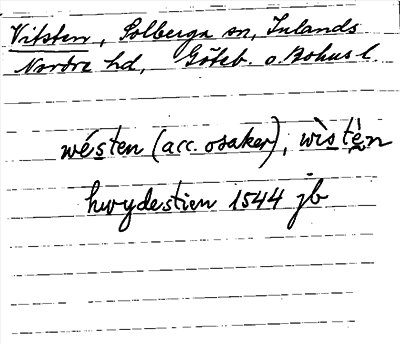 Vitsten, Solberga sn, Inlands
Nordre hd, Göteb. o. Bohus l.
wésten (acc. osaker), wìstèn
hwydestien 1544 jb